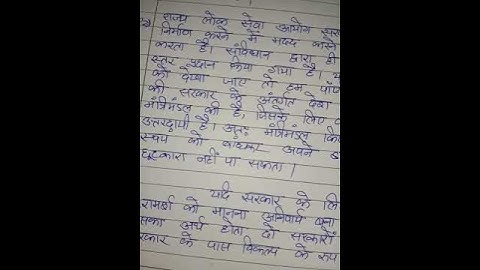 राज्य लोक सेवा आयोग
निर्माण करने में मदद करने
करता है। संविधान द्वारा ही
स्तर प्रदान किया गया है।
को देखा जाए तो हम पाएं
की सरकार के अंतर्गत देश
मंत्रिमंडल की है, जिसके लिए
उत्तरदायी है। अतः मंत्रिमंडल
स्वयं को कहकर अपने
छुटकारा नहीं पा सकता।
यदि सरकार के लि
रामर्श को मानना अनिवार्य बना
सका अर्थ होता दो सरकारों
रकार के पास विकल्प के रूप